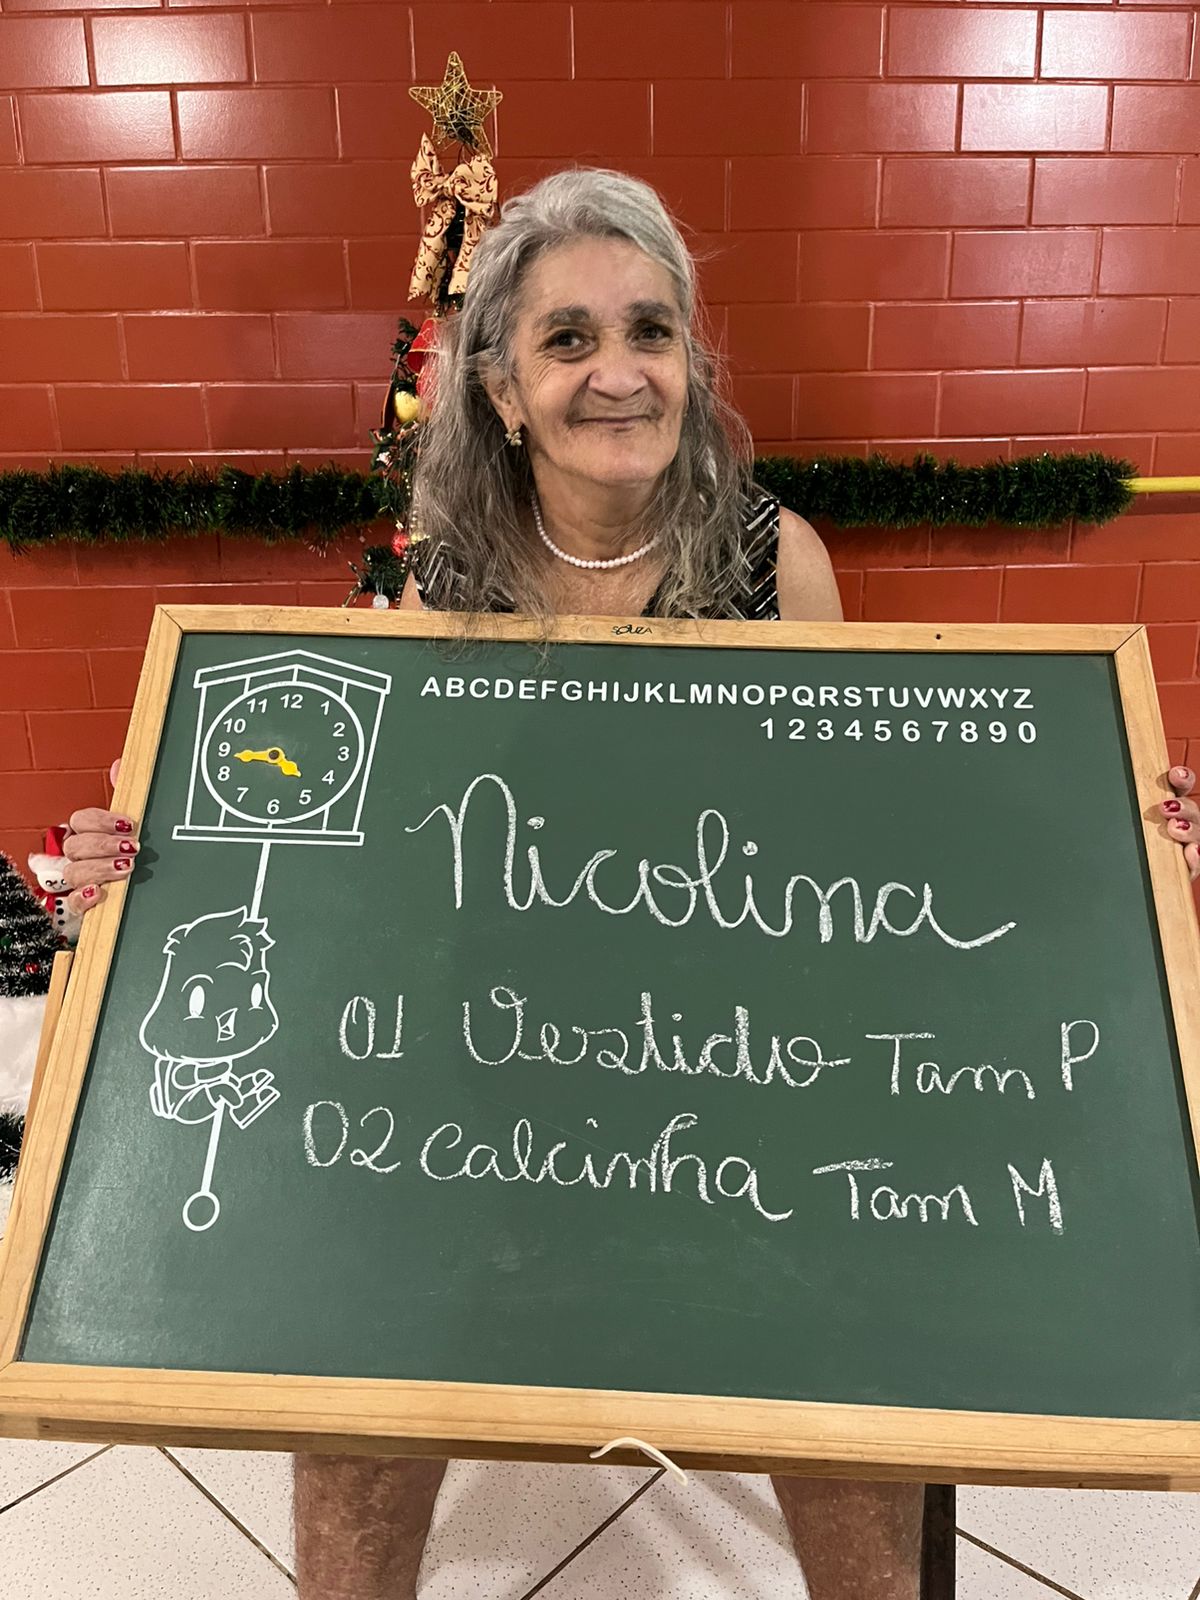 SOUZA
ABCDEFGHIJKLMNOPQRSTUVWXYZ
1234567890
12
11
1
10
2
9
3
8
4
7
5
6
Nicolina
01 Vestido Tam P
02 Calcinha Tam M